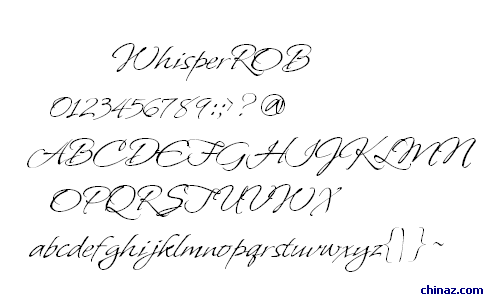 WhisperROB
0123456789:;>?@
ABCDEFGHIJKLMN
OPQRSTUVWX
abcdefghijklmnopqrstuvwxyz{|}~
chinaz.com